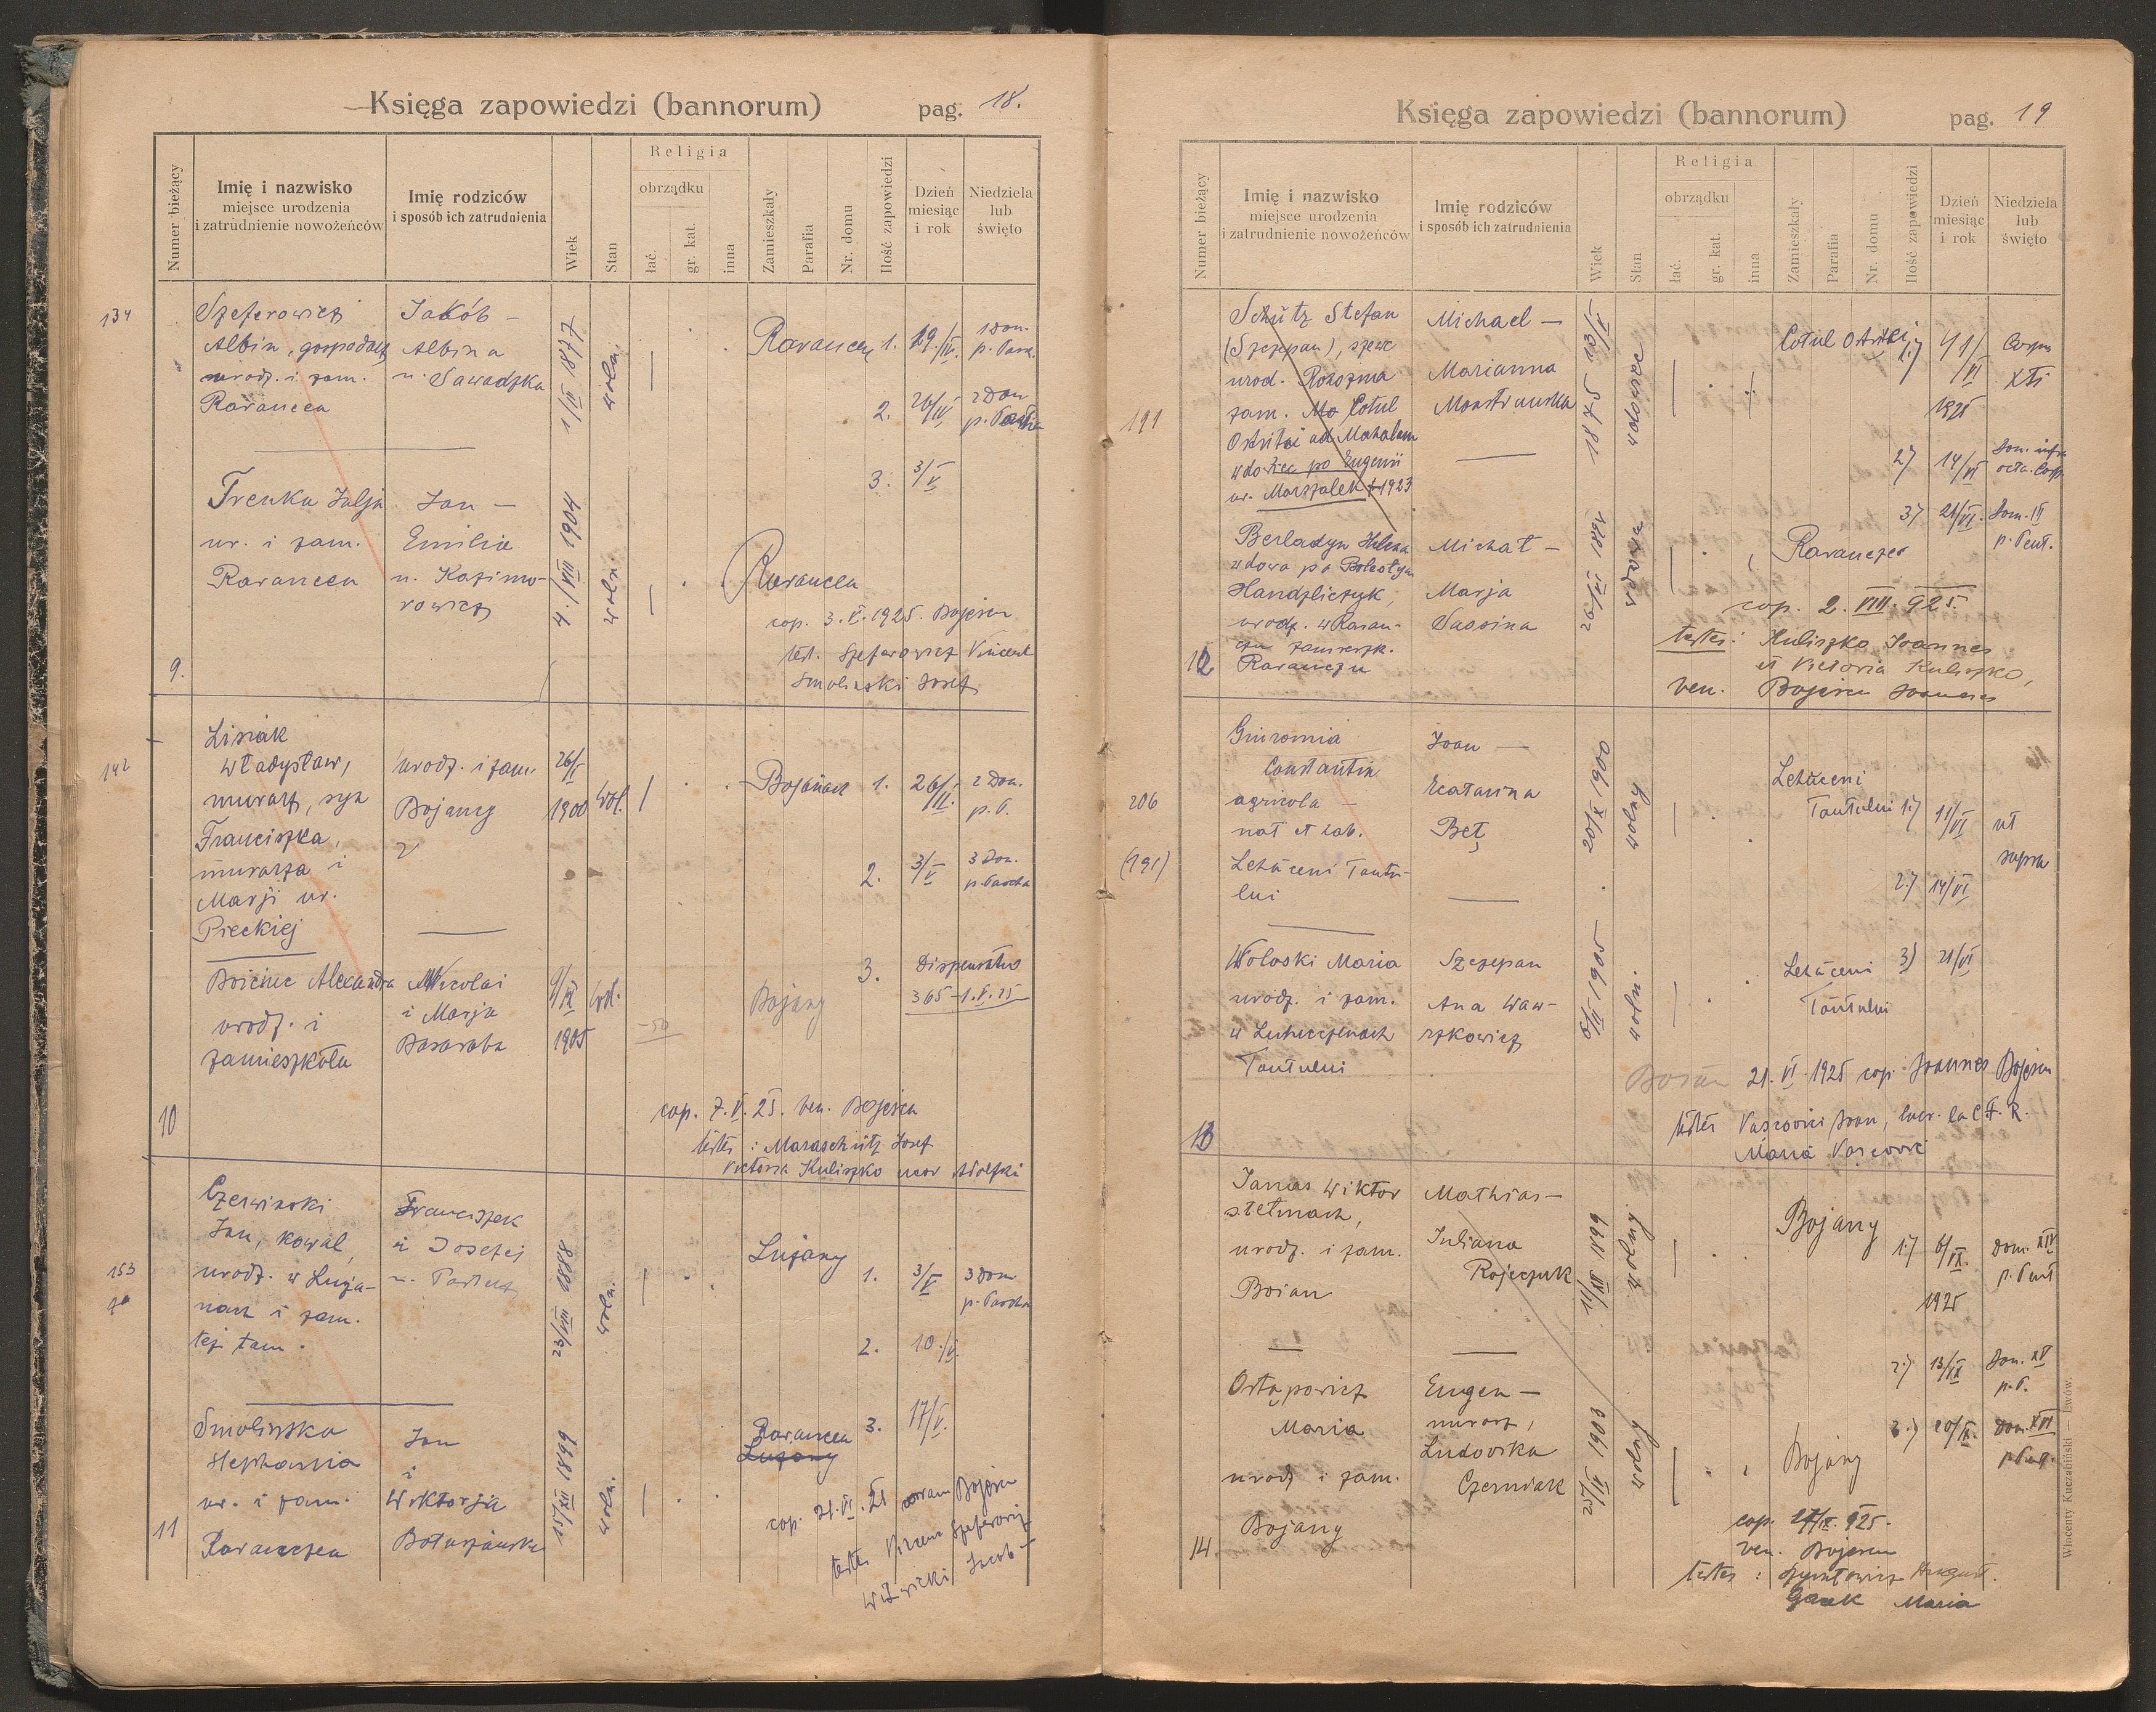 Księga zapowiedzi (bannorum) pag. 18.
Numer bieżący
Imię i nazwisko
miejsce urodzenia
i zatrudnienie nowożeńców
Imię rodziców
i sposób ich zatrudnienia
Wiek
Stan
Religia
obrządku
łać.
gr. kat.
inna
Zamieszkały
Parafia
Nr. domu
Ilość zapowiedzi
Dzień
miesiąc
i rok
Niedziela
lub
święto
134
Szeferowicz
Albin, gospodarz
urodz. i zam.
Rarancea
Jakób —
Albina
u. Sawadzka
1/II 1877
woln.
Rarancea 1. 19./IV. 1 Dom. p. Pasch.
2. 26/IV 2 Dom p. Pascha
3. 3/V
Trenka Julja
ur. i zam.
Rarancea
Jan —
Emilia
u. Kazimo-
rowicz
4./VIII 1904
woln.
Rarancea
cop. 3.V.1925. Bojescu
test. Szeferowicz Vincent
Smolinski Josef
9.
142
Lisiak
Władysław,
murarz, syn
Franciszka,
murarza i
Marji ur.
Preckiej
urodz. i zam.
Bojany
26/I
1900
wol.
Bojanach 1. 26/IV. 2 Dom. p. P.
2. 3/V 3 Dom. p. Pascha
3. Dispensatus
365 - 1.V.25
Boiciuc Alexandra
urodz. i
zamieszkoła
Nicolai
i Marja
Basaraba
9/IX
1905
wol.
—50
Bojany
cop. 7.V.25. ven. Bojescu
testes : Maraschütz Josef
Victoria Kuliszko uxor Adolfki
10
153
Czerwinski
Jan, kowal,
urodz. w Luża-
nach i zam.
tej tam.
Franciszek
i Josefej
u. Partusz
23/VIII 1888
woln.
Lujany
1. 3/V 3 Dom p. Pascha
2. 10./V.
3. 17/V.
Smolinska
Stephania
ur. i zam.
Ranaczea
Jan
i
Wiktorja
Botuszańska
15/IX 1899
woln.
Rarancea
Lujany
cop. 21.VI.25 coram Bojescu
testes Vincen Szeferowicz
Witwicki Jacob —
11
Księga zapowiedzi (bannorum) pag. 19
Numer bieżący
Imię i nazwisko
miejsce urodzenia
i zatrudnienie nowożeńców
Imię rodziców
i sposób ich zatrudnienia
Wiek
Stan
Religia
obrządku
łać.
gr. kat.
inna
Zamieszkały
Parafia
Nr. domu
Ilość zapowiedzi
Dzień
miesiąc
i rok
Niedziela
lub
święto
191
Schütz Stefan
(Szczepan), szewc
urod. Rokszma
zam. Mo Cotul
Ostritei ad Mahalam
wdowiec po Eugenii
ur. Marszalek †1923
Michael —
Marianna
Monstrumska
1875
wdowiec
Cotul Ostritei 1.) 11/VI 1925 Corpus XTi
2) 14/VI Dom. infra octa. Corp.
3) 21/VI. Dom. III p. Pent.
Berladyn Helena
wdowa po Bolestyn
Handzliczyk,
urodz. w Raran-
czu zamieszk.
Raranczu
Michał —
Marja
Sassina
wdowa
Raranczeo
cop. 2. VIII. 925.
testes: Kuliszko Joannes
et Victoria Kuliszko,
ven. Bojescu Joannes
12
206
(191)
Giuromia
Constantin
agricola —
nat et hab.
Lehăceni Tăutu-
lui
Joan —
Ecatarina
Beț
20/X 1900
wolny
Lehăceni
Tautului 1.) 11/VI ut supra
2.) 14/VI
3) 21/VI
Woloski Maria
urodz. i zam.
w Luhuczenach
Tautului
Szczepan
Ana Waw-
rzkowicz
6/II 1905
woln.
Lehăceni
Tăutului
Boian 21.VI.1925 cop. Joannes Bojescu
testes Vascovici Joan, lucr. la C.F.R.
Maria Vașcovici
13
Janus Wiktor
stelmach,
urodz. i zam.
Boian
Mathias —
Juliana
Rojeczuk
wolny
Bojany
1.) 6/IX. 1925 Dom. XIV p. Pent
2.) 13/IX Dom. XV p. P.
3.) 20/IX. Dom. XVI p Pent.
Ostapowicz
Maria
urodz i zam.
Bojany
Eugen —
murarz,
Ludovika
Czerniak
1903
wolny
Bojany
cop. 27/IX. 925.
ven. Bojescu
testes : Szymtowicz August.
Gauk Maria
14
Wincenty Kuczabiński — Lwów.